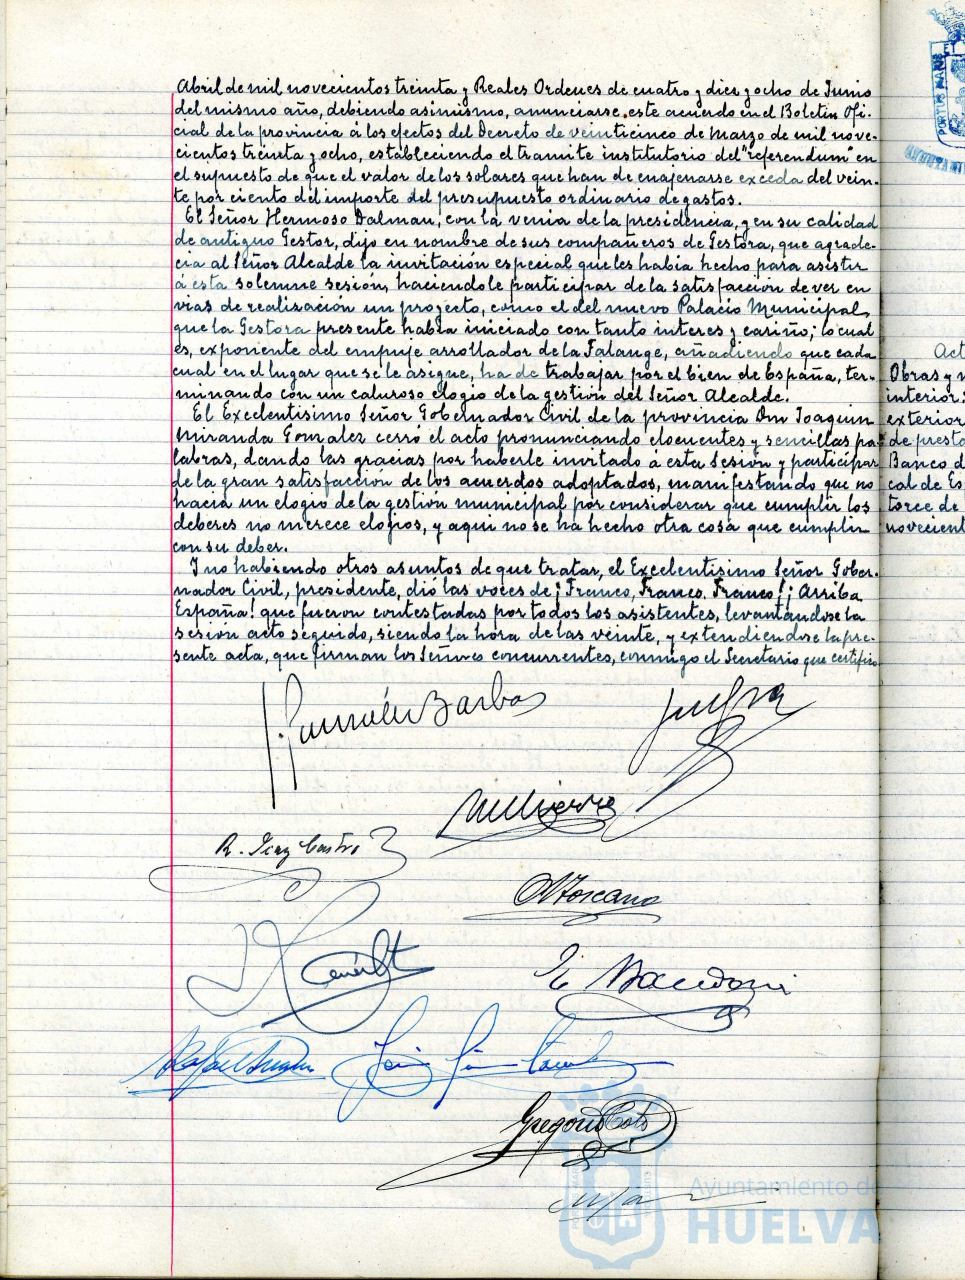 Abril de mil novecientos treinta y Reales Ordenes de cuatro y diez y ocho de Junio
del mismo año, debiendo asimismo, anunciarse, este acuerdo en el Boletin Ofi-
cial de la provincia á los efectos del Decreto de veinticinco de Marzo de mil nove-
cientos treinta y ocho, estableciendo el tramite institutorio del "referendum" en
el supuesto de que el valor de los solares que han de enajenarse exceda del vein-
te por ciento del importe del presupuesto ordinario de gastos.
El Señor Hermoso Dalman, con la venia de la presidencia, y en su calidad
de antiguo Gestor, dijo en nombre de sus compañeros de Gestora, que agrade-
cia al Señor Alcalde la invitación especial que les habia hecho para asistir
á esta solemne sesion, haciendole participar de la satisfacción de ver en
vias de realización un proyecto, como el del nuevo Palacio Municipal,
que la Gestora presente habia iniciado con tanto interes y cariño; lo cual
es, exponente del empuje arrollador de la Falange, añadiendo que cada
cual en el lugar que se le asigne, ha de trabajar por el bien de España, ter-
minando con un caluroso elogio de la gestión del Señor Alcalde.
El Excelentisimo Señor Gobernador Civil de la provincia Don Joaquin
Miranda Gonzalez cerró el acto pronunciando elocuentes y sencillas pa-
labras, dando las gracias por haberle invitado á esta Sesión y participar
de la gran satisfacción de los acuerdos adoptados, manifestando que no
hacia un elogio de la gestión municipal por considerar que cumplir los
deberes no merece elogios, y aqui no se ha hecho otra cosa que cumplir
con su deber.
Y no habiendo otros asuntos de que tratar, el Excelentisimo Señor Gober-
nador Civil, presidente, dió las voces de ¡Franco, Franco, Franco! ¡Arriba
España! que fueron contestadas por todos los asistentes, levantandose la
sesión acto seguido, siendo la hora de las veinte, y extendiendose la pre-
sente acta, que firman los Señores concurrentes, conmigo el Secretario que certifico
Barbas
R. Diaz Castro
Toscano
Rafael
Gregorio Coto
Ayuntamiento de
HUELVA
PORTUS MARIS
Act
Obras y
interior:
exterior
de presta
Banco d
cal de Es
torce de
novecient